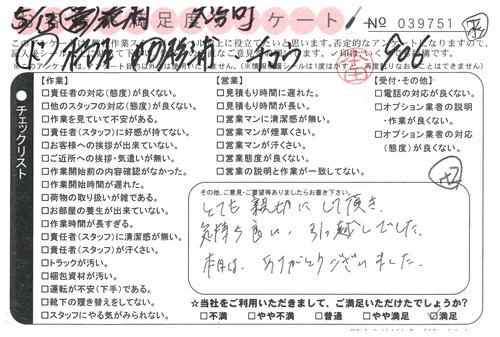 満足度アンケート
NO 039751
5/13
チェックリスト
【作業】
□責任者の対応(態度)が良くない。
□他のスタッフの対応(態度)が良くない。
□作業を見ていて不安がある。
□責任者(スタッフ)に好感が持てない。
□お客様への挨拶が出来ていない。
□ご近所への挨拶・気遣いが無い。
□作業開始前の内容確認がなかった。
□作業開始時間が遅れた。
□荷物の取り扱いが雑である。
□お部屋の養生が出来ていない。
□作業時間が長すぎる。
□責任者(スタッフ)に清潔感が無い。
□責任者(スタッフ)が汗くさい。
□トラックが汚い。
□梱包資材が汚い。
□運転が不安(下手)である。
□靴下の履き替えをしてない。
□スタッフにやる気がみられない。
【営業】
□見積もり時間に遅れた。
□見積もり時間が長い。
□営業マンに清潔感が無い。
□営業マンが煙草くさい。
□営業マンが汗くさい。
□営業態度が良くない。
□営業の説明と作業が一致してない。
【受付・その他】
□電話の対応が良くない。
□オプション業者の説明
・作業が良くない。
□オプション業者の対応
(態度)が良くない。
その他、ご意見・ご要望等ありましたらお書き下さい。
とても親切にして頂き、
気持ち良い、引っ越しでした。
本日は、ありがとうございました。
☆当社をご利用いただきまして、ご満足いただけたでしょうか?
□不満 □やや不満 □普通 □やや満足 ☑満足